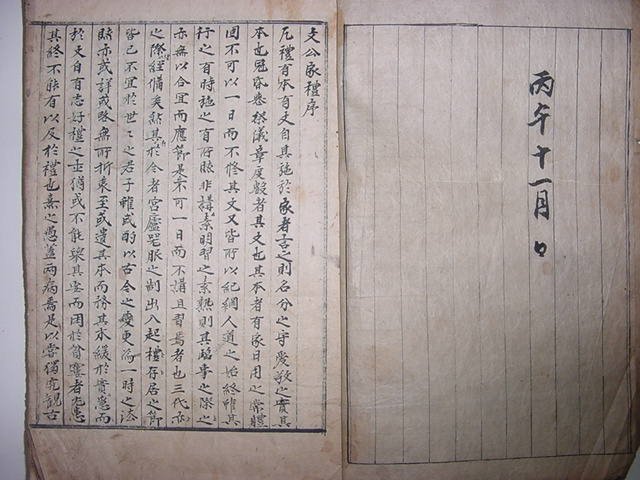 丙午十一月口
文公家禮序
凡禮有本有文自其施於家者言之則名分之守愛敬之實其
本也冠昏喪祭儀章度數者其文也其本者有家日用之常體
固不可以一日而不修其文又皆所以紀綱人道之始終雖其
行之有時施之有所然非講之素明習之素熟則其臨事之際
亦無以合宜而應節是不可一日而不講且習焉者也三代
之際禮經備矣然其於今者宮廬器服之制出入起居之節
皆已不宜於世世之君子雖或酌以古今之變更為一時之法
然亦或詳或略無所折衷至或遺其本而務其末緩於實而
於文自有志好禮之士猶或不能舉其要而困於貧窶者尤患
其終不能有以及於禮也熹之愚蓋兩病焉是以嘗獨究觀古